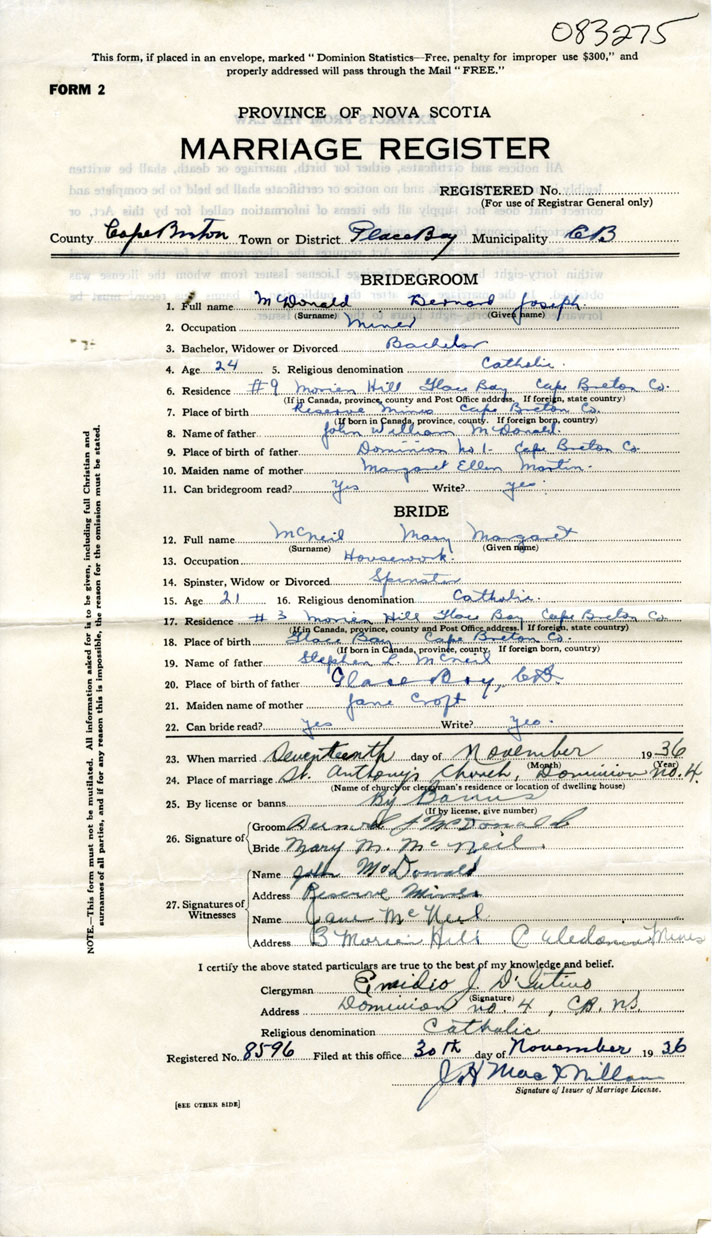 083275
This form, if placed in an envelope, marked "Dominion Statistics—Free, penalty for improper use $300," and
properly addressed will pass through the Mail "FREE."
FORM 2
PROVINCE OF NOVA SCOTIA
MARRIAGE REGISTER
REGISTERED No.
(For use of Registrar General only)
County Cape Breton Town or District Glace Bay Municipality CB
BRIDEGROOM
1. Full name McDonald Bernard Joseph
(Surname) (Given name)
2. Occupation Miner
3. Bachelor, Widower or Divorced Bachelor
4. Age 24 5. Religious denomination Catholic.
6. Residence #9 Morien Hill Glace Bay Cape Breton Co.
(If in Canada, province, county and Post Office address. If foreign, state country)
7. Place of birth Reserve Mines Cape Breton Co.
(If born in Canada, province, county. If foreign born, country)
8. Name of father John William McDonald.
9. Place of birth of father Dominion No 1. Cape Breton Co
10. Maiden name of mother Margaret Ellen Martin.
11. Can bridegroom read? Yes Write? yes.
BRIDE
12. Full name McNeil Mary Margaret
(Surname) (Given name)
13. Occupation Housework.
14. Spinster, Widow or Divorced Spinster
15. Age 21 16. Religious denomination Catholic.
17. Residence #3 Morien Hill Glace Bay Cape Breton Co
(If in Canada, province, county and Post Office address. If foreign, state country)
18. Place of birth Glace Bay Cape Breton Co.
(If born in Canada, province, county. If foreign born, country)
19. Name of father Stephen L. McNeil
20. Place of birth of father Glace Bay, C.B.
21. Maiden name of mother Jane Croft
22. Can bride read? yes Write? yes.
23. When married Seventeenth day of November 1936
(Month) (Year)
24. Place of marriage St. Anthony's Church, Dominion No. 4.
(Name of church or clergyman's residence or location of dwelling house)
25. By license or banns By Banns
(If by license, give number)
26. Signature of Groom Bernard J McDonald
Bride Mary M. McNeil.
27. Signatures of Witnesses Name John McDonald
Address Reserve Mines
Name Jane McNeil
Address 3 Morien Hill Caledonia Mines
I certify the above stated particulars are true to the best of my knowledge and belief.
Clergyman Emidio J. D'Intino
(Signature)
Address Dominion No. 4, C.B. N.S.
Religious denomination Catholic
Registered No. 8596 Filed at this office 30th day of November 1936
J H MacMillan
Signature of Issuer of Marriage License.
[SEE OTHER SIDE]
NOTE.—This form must not be mutilated. All information asked for is to be given, including full Christian and
surnames of all parties, and if for any reason this is impossible, the reason for the omission must be stated.